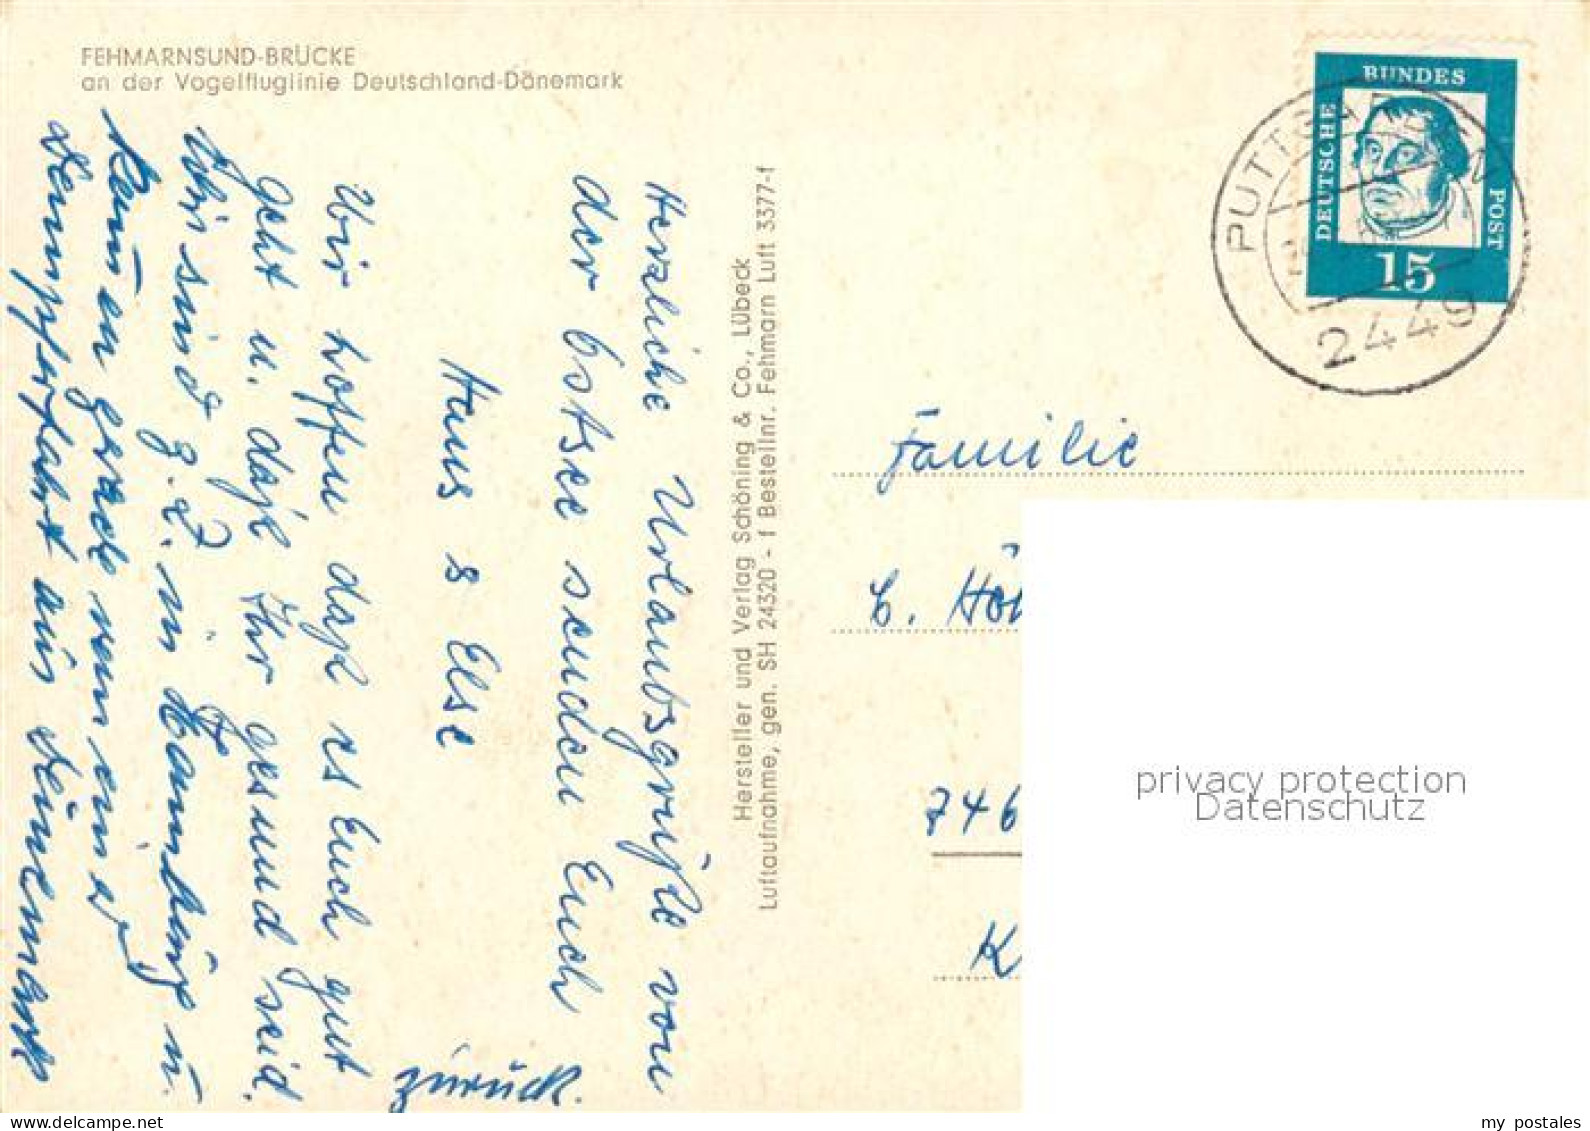 FEHMARNSUND-BRÜCKE
an der Vogelfluglinie Deutschland-Dänemark
Herzliche Urlaubsgrüße von
der Ostsee senden Euch
Hans & Else
Wir hoffen daß es Euch gut
geht u. daß Ihr gesund seid.
Wir sind z.Z. in u.
kamen gerade von einer
Dampferfahrt aus Dänemark
zurück.
Hersteller und Verlag Schöning & Co., Lübeck
Luftaufnahme, gen. SH 24320 - f Bestellnr. Fehmarn Luft 3377-f
DEUTSCHE
BUNDES
POST
15
PUTTGARDEN
2449
Familie
746
K
privacy protection
Datenschutz
my postales